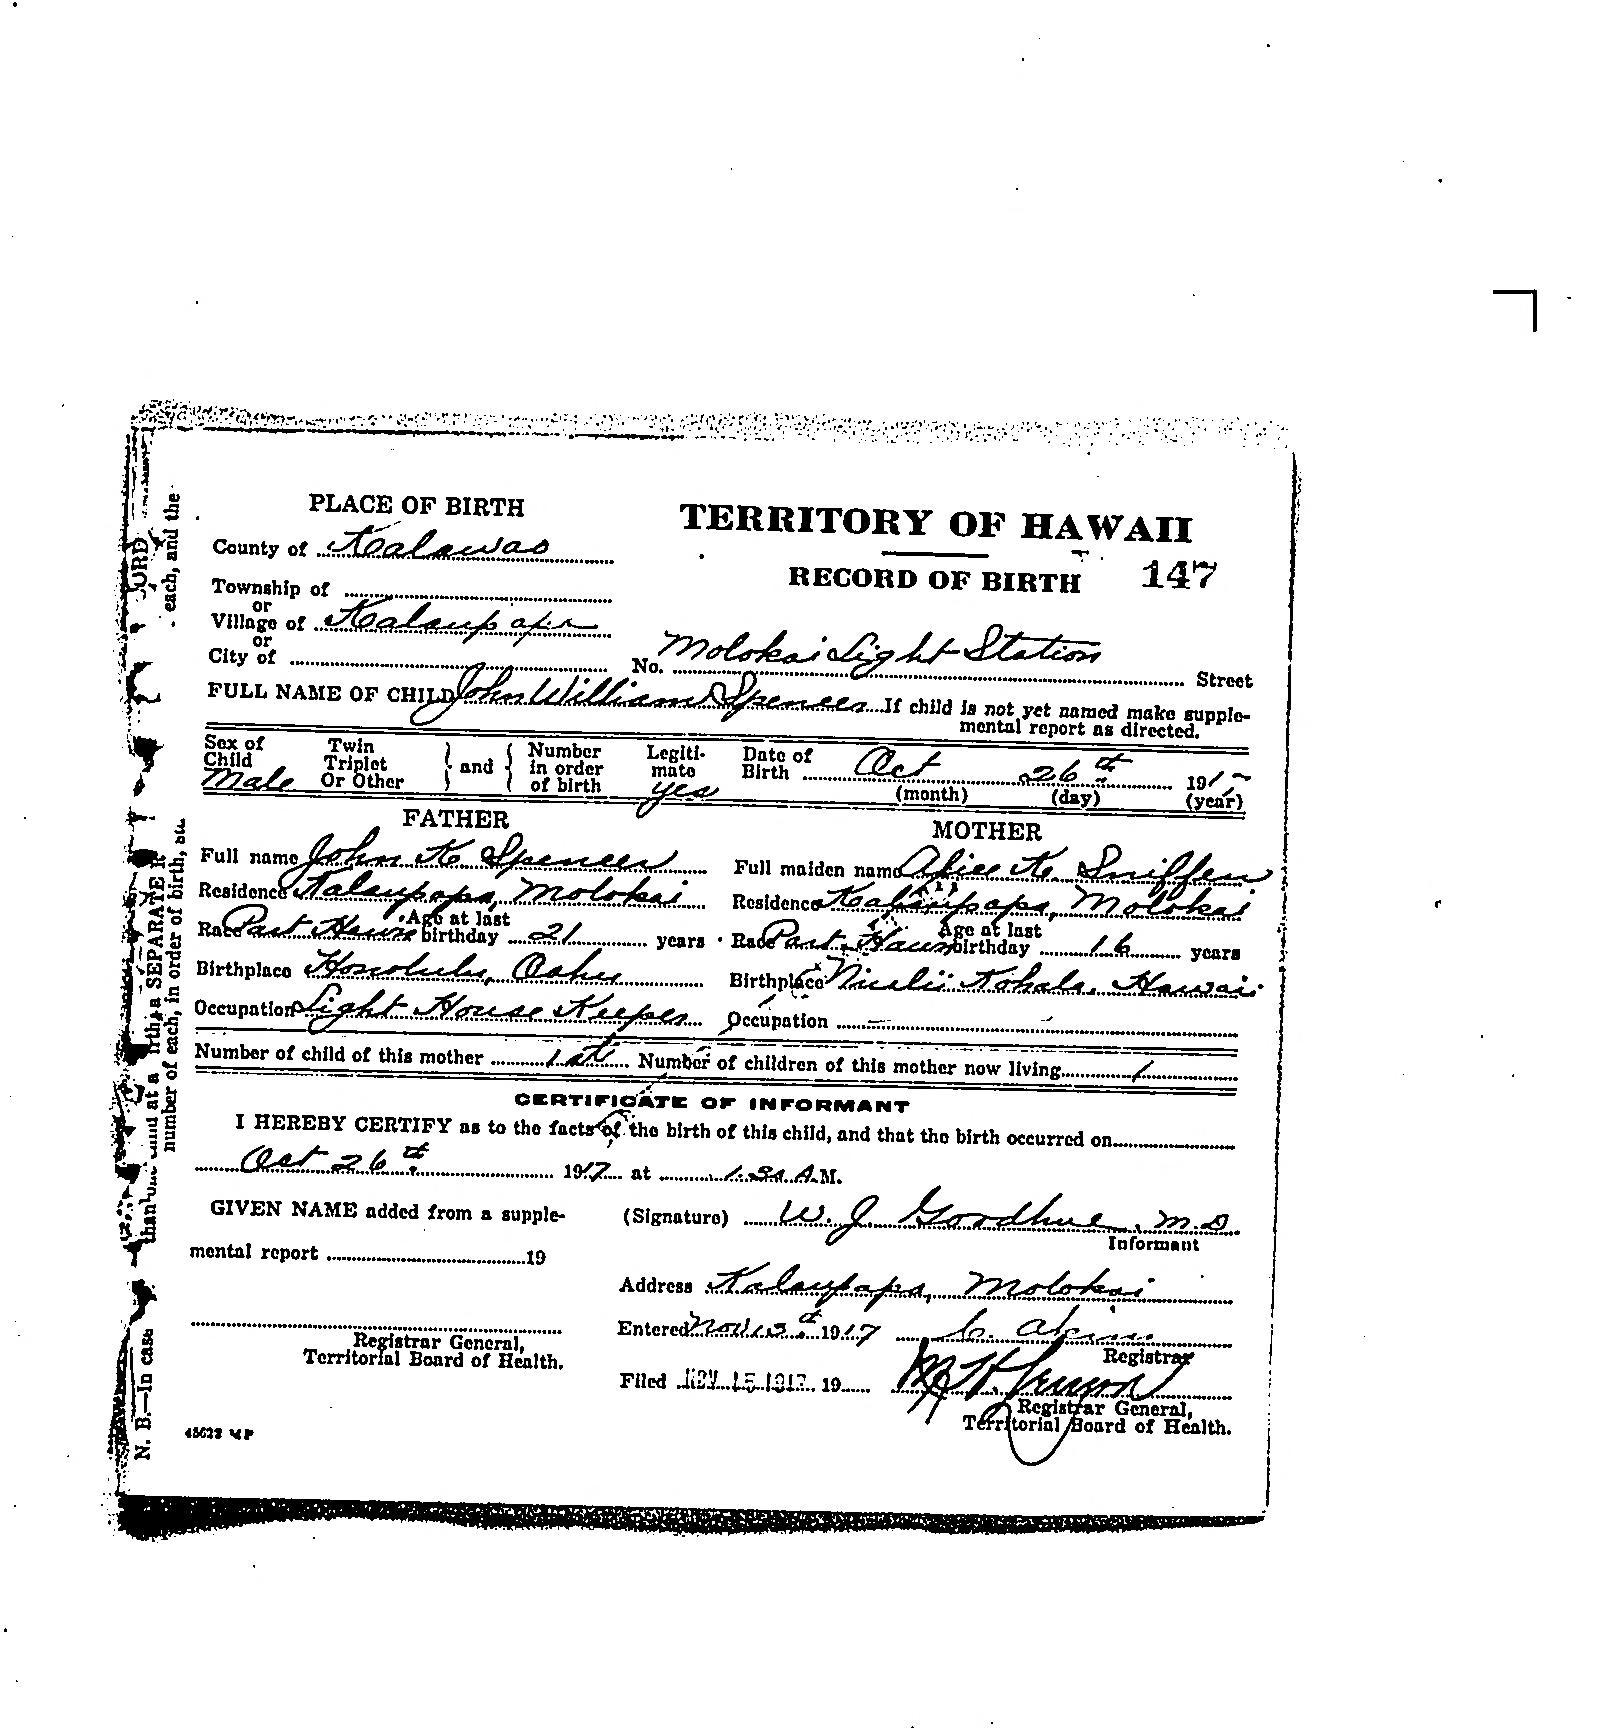 PLACE OF BIRTH
TERRITORY OF HAWAII
County of Kalawao
RECORD OF BIRTH 147
Township of
or
Village of Kalaupapa
or
City of
No. Molokai Light Station Street
FULL NAME OF CHILD John William Spencer If child is not yet named make supple-
mental report as directed.
Sex of Child Male
Twin Triplet Or Other
and
Number in order of birth
Legiti-mate yes
Date of Birth Oct 26th 1917
(month) (day) (year)
FATHER
Full name John K Spencer
Residence Kalaupapa, Molokai
Race Part Hawn Age at last birthday 21 years
Birthplace Honolulu, Oahu
Occupation Light House Keeper
MOTHER
Full maiden name Alice K. Sniffen
Residence Kalaupapa, Molokai
Race Part Hawn Age at last birthday 16 years
Birthplace Niulii Kohala, Hawaii
Occupation —
Number of child of this mother 1st Number of children of this mother now living 1
CERTIFICATE OF INFORMANT
I HEREBY CERTIFY as to the facts of the birth of this child, and that the birth occurred on
Oct 26th 1917 at 1.30 A.M.
GIVEN NAME added from a supple-
mental report 19
Registrar General,
Territorial Board of Health.
(Signature) W. J. Goodhue, M.D.
Informant
Address Kalaupapa, Molokai
Entered Nov 13th 1917
Registrar
Filed NOV 15 1917 19
Registrar General,
Territorial Board of Health.
N. B.—In case
number of each, in order of birth,
a SEPARATE
each, and the